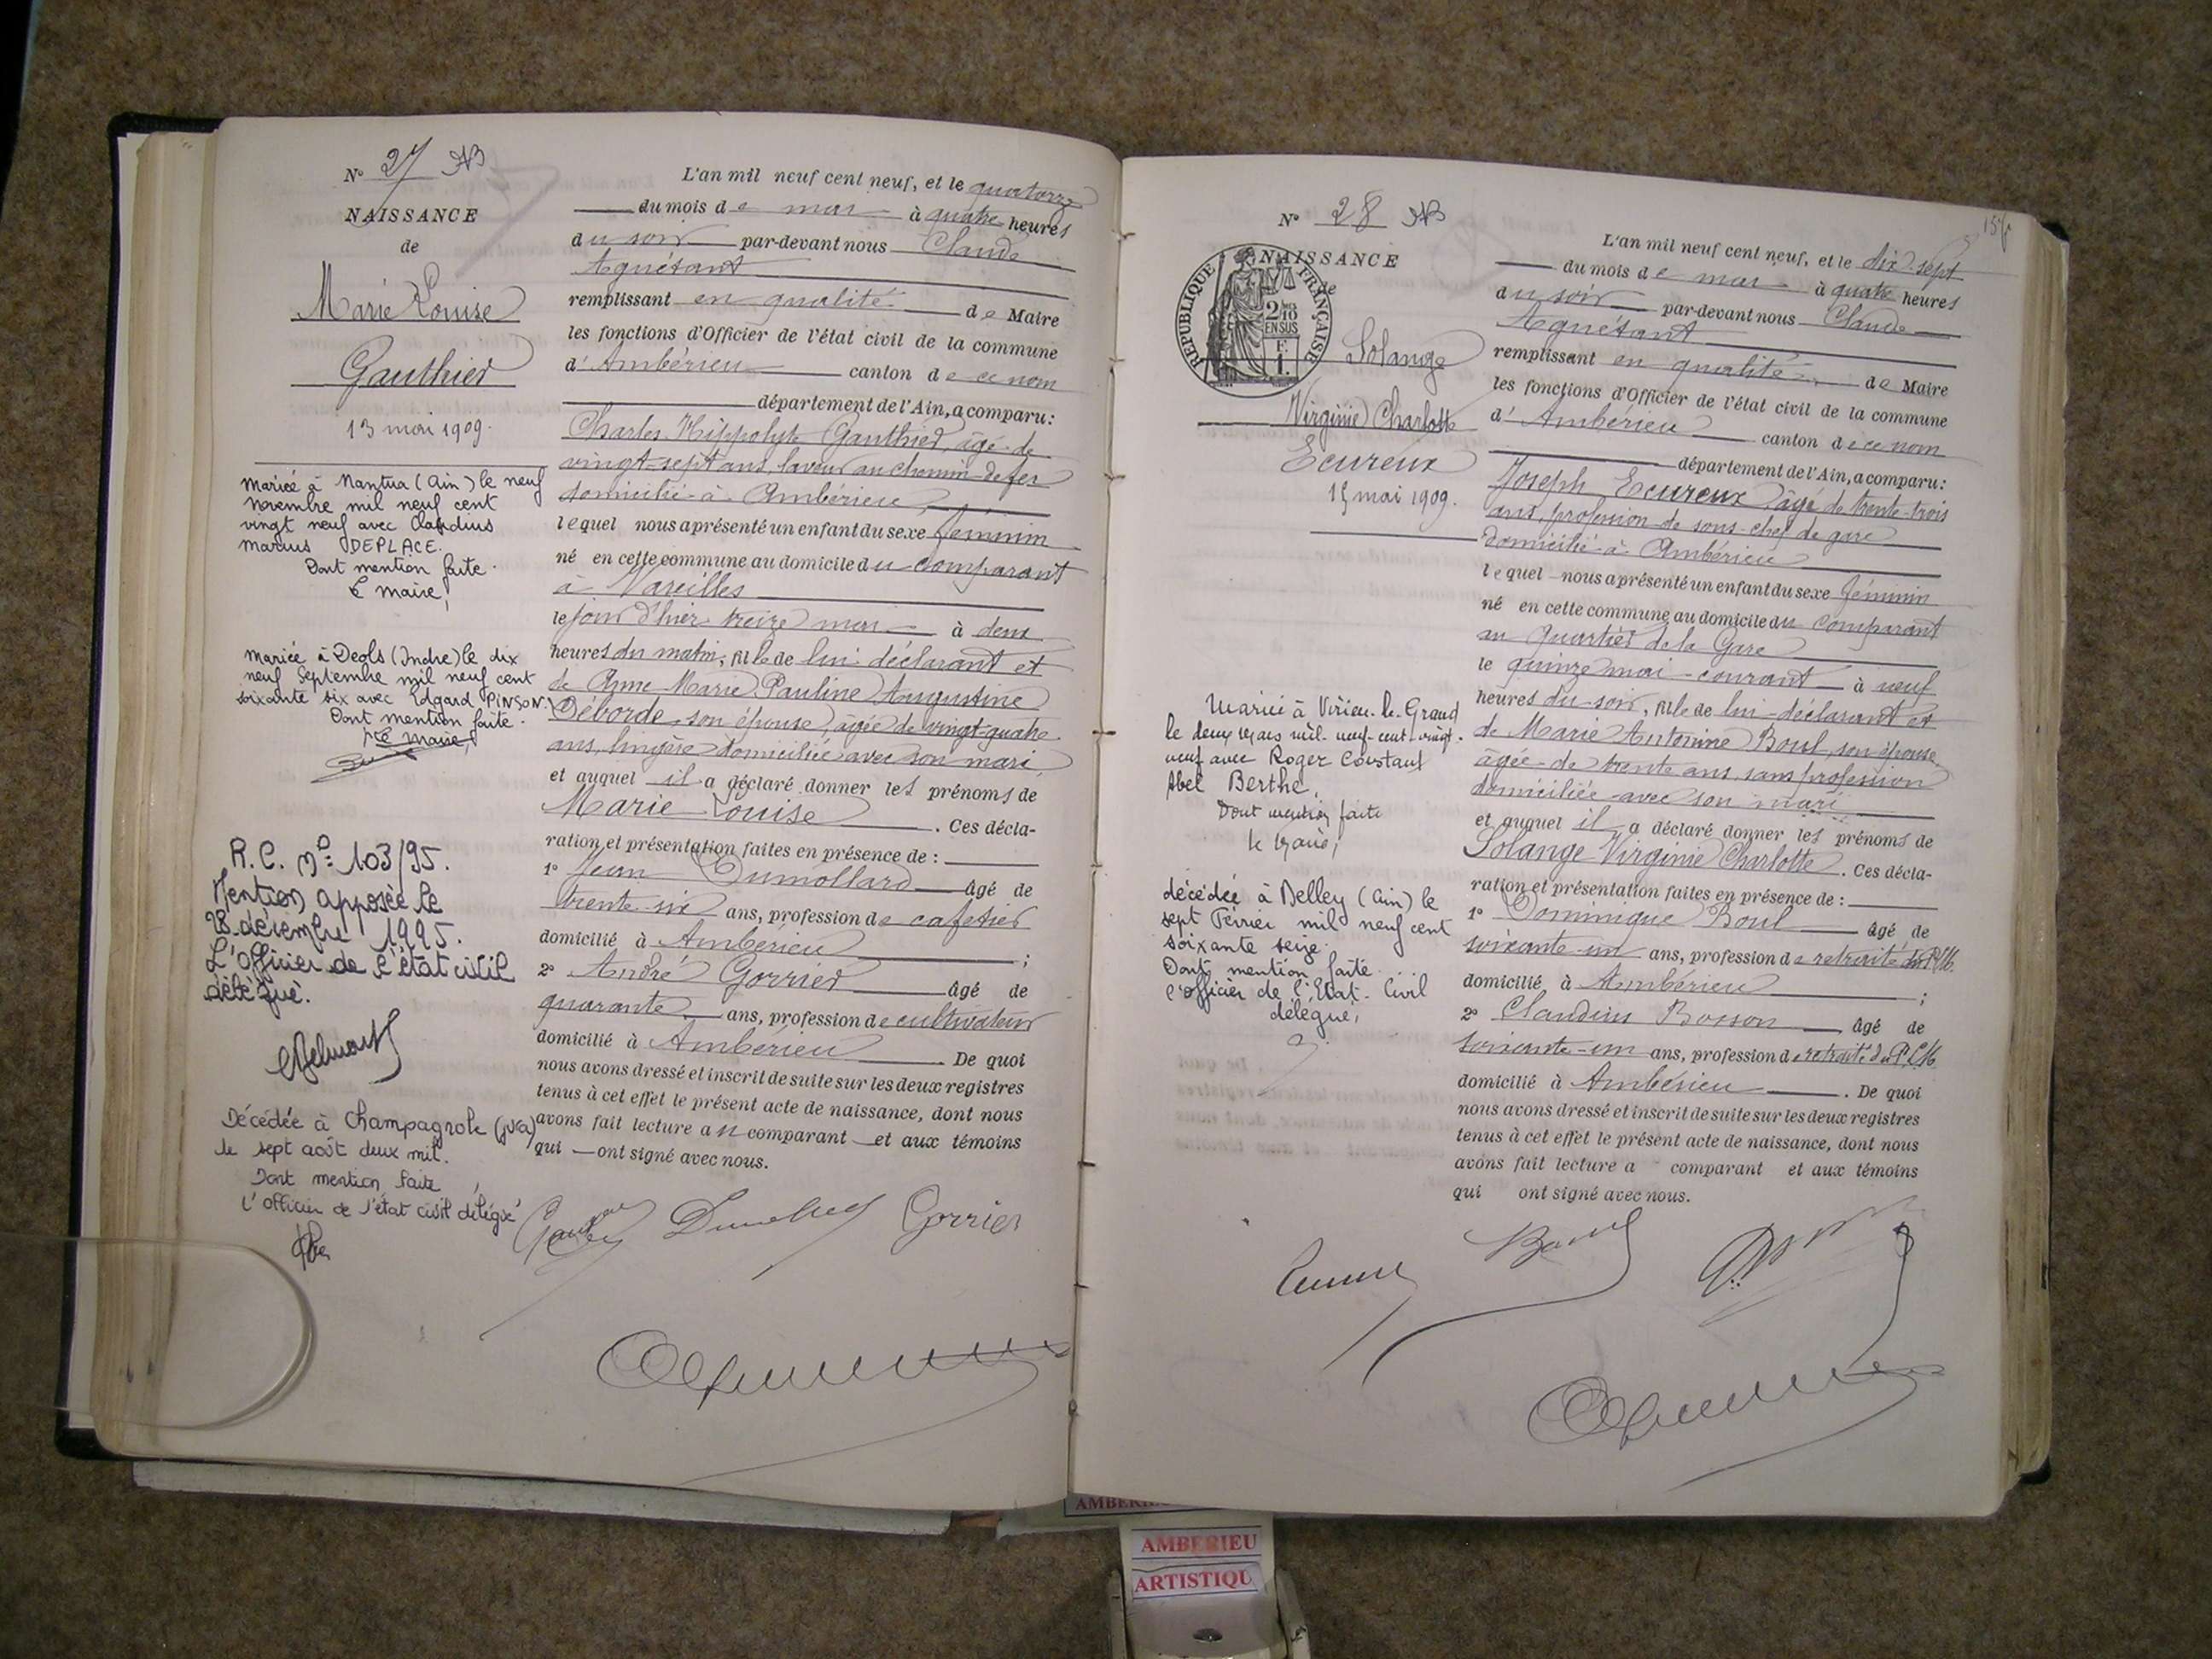 N° 27 AB
NAISSANCE
de
Marie Louise
Gauthier
13 mai 1909.
Mariée à Nantua (Ain) le neuf
novembre mil neuf cent
vingt neuf avec Claudius
Marius DEPLACE.
Dont mention faite.
Le maire,
Mariée à Deols (Indre) le dix
neuf Septembre mil neuf cent
soixante six avec Edgard PINSON.
Dont mention faite.
Le Maire,
R.C. n° 103/95.
Mention apposée le
28 décembre 1995.
L'officier de l'état civil
délégué.
Décédée à Champagnole (Jura)
le sept août deux mil.
Dont mention faite,
l'officier de l'état civil délégué
L'an mil neuf cent neuf, et le quatorze
du mois de mai à quatre heures
du soir par-devant nous Claude
Aguétant
remplissant en qualité de Maire
les fonctions d'Officier de l'état civil de la commune
d'Ambérieu canton de ce nom
département de l'Ain, a comparu:
Charles Hippolyte Gauthier, âgé de
vingt-sept ans, laveur au chemin de fer
domicilié à Ambérieu,
lequel nous a présenté un enfant du sexe féminin
né en cette commune au domicile du comparant
à Vareilles
le jour d'hier treize mai à deux
heures du matin, fille de lui déclarant et
de Anne Marie Pauline Augustine
Déborde, son épouse, âgée de vingt-quatre
ans, lingère domiciliée avec son mari,
et auquel il a déclaré donner les prénoms de
Marie Louise. Ces décla-
ration et présentation faites en présence de :
1° Jean Dumollard âgé de
trente-six ans, profession de cafetier
domicilié à Ambérieu ;
2° André Gorrier âgé de
quarante ans, profession de cultivateur
domicilié à Ambérieu De quoi
nous avons dressé et inscrit de suite sur les deux registres
tenus à cet effet le présent acte de naissance, dont nous
avons fait lecture au comparant et aux témoins
qui ont signé avec nous.
Gorrier
N° 28 AB
NAISSANCE
de
RÉPUBLIQUE FRANÇAISE
2/10
EN SUS
F.
1.
Solange
Virginie Charlotte
Ecureux
15 mai 1909.
Mariée à Virieu-le-Grand
le deux mars mil-neuf-cent-vingt-
neuf avec Roger Constant
Abel Berthe,
Dont mention faite
le maire,
décédée à Belley (Ain) le
sept Février mil neuf cent
soixante seize.
Dont mention faite.
l'officier de l'Etat-Civil
délégué,
L'an mil neuf cent neuf, et le dix-sept
du mois de mai à quatre heures
du soir par-devant nous Claude
Aguétant
remplissant en qualité de Maire
les fonctions d'Officier de l'état civil de la commune
d'Ambérieu canton de ce nom
département de l'Ain, a comparu:
Joseph Ecureux, âgé de trente-trois
ans, profession de sous-chef de gare
domicilié à Ambérieu
lequel nous a présenté un enfant du sexe féminin
né en cette commune au domicile du comparant
au quartier de la Gare
le quinze mai courant à neuf
heures du soir, fille de lui déclarant et
de Marie Antonine Boul, son épouse,
âgée de trente ans, sans profession
domiciliée avec son mari
et auquel il a déclaré donner les prénoms de
Solange Virginie Charlotte. Ces décla-
ration et présentation faites en présence de :
1° Dominique Boul âgé de
soixante-un ans, profession de retraité du
domicilié à Ambérieu ;
2° Claudius Bosson âgé de
soixante-un ans, profession de retraité du
domicilié à Ambérieu. De quoi
nous avons dressé et inscrit de suite sur les deux registres
tenus à cet effet le présent acte de naissance, dont nous
avons fait lecture a comparant et aux témoins
qui ont signé avec nous.
AMBERIEU
ARTISTIQU